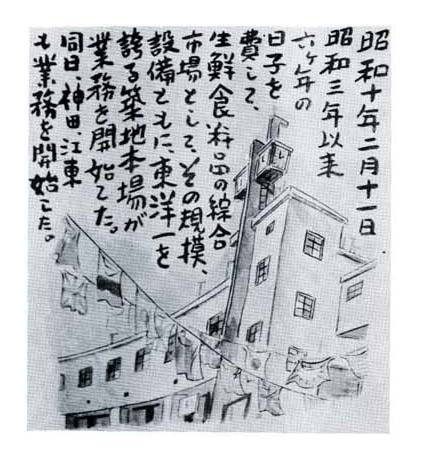 昭和十年二月十一日
昭和三年以来
六ヶ年の
日子を
費して、
生鮮食料品の綜合
市場として、その規模、
設備ともに、東洋一を
誇る築地本場が
業務を開始てた。
同日、神田、江東
も業務を開始した。